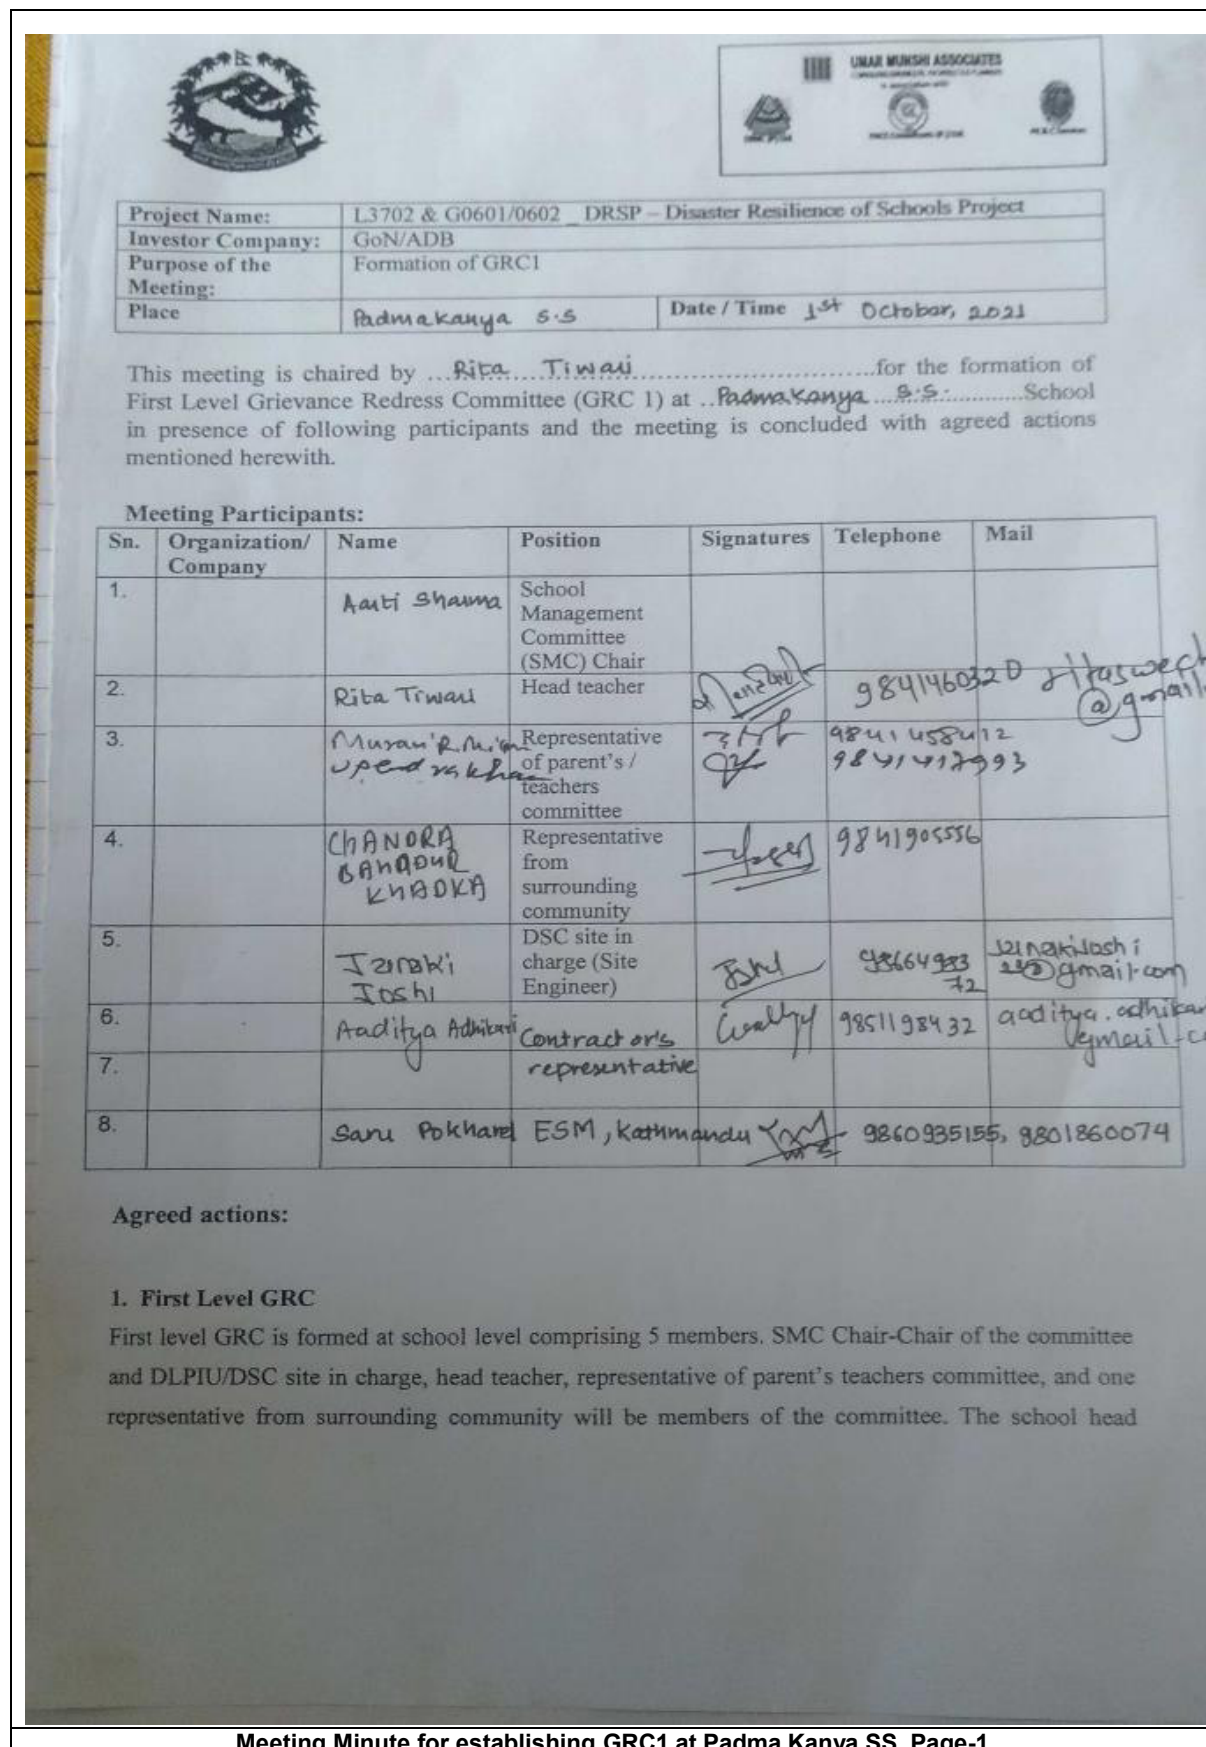 UMAR MUNSHI ASSOCIATES
Project Name: L3702 & G0601/0602 _ DRSP – Disaster Resilience of Schools Project
Investor Company: GoN/ADB
Purpose of the Meeting: Formation of GRC1
Place Padmakanya S.S Date / Time 1st October, 2021
This meeting is chaired by ...Rita Tiwari...for the formation of
First Level Grievance Redress Committee (GRC 1) at ..Padmakanya S.S. ...School
in presence of following participants and the meeting is concluded with agreed actions
mentioned herewith.
Meeting Participants:
Sn. Organization/ Company Name Position Signatures Telephone Mail
1. Aarti Sharma School Management Committee (SMC) Chair
2. Rita Tiwari Head teacher 9841460320 @gmail
3. Representative of parent's / teachers committee 9841458412
9841417993
4. CHANDRA BAHADUR KHADKA Representative from surrounding community 9841905556
5. Janaki Joshi DSC site in charge (Site Engineer) Joshi 9866498372 @gmail.com
6. Aaditya Adhikari Contractor's 9851198432 aaditya.adhikar
7. representative
8. Saru Pokharel ESM, Kathmandu 9860935155, 9801860074
Agreed actions:
1. First Level GRC
First level GRC is formed at school level comprising 5 members. SMC Chair-Chair of the committee
and DLPIU/DSC site in charge, head teacher, representative of parent's teachers committee, and one
representative from surrounding community will be members of the committee. The school head
Meeting Minute for establishing GRC1 at Padma Kanya SS, Page-1